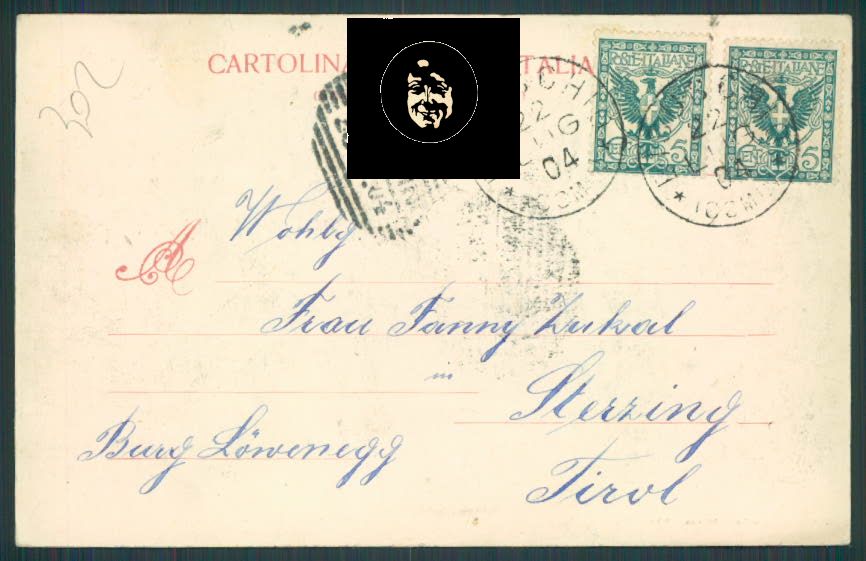 302
CARTOLINA ITALIA
POSTE·ITALIANE
POSTE·ITALIANE
CENT. 5
CENT. 5
22
04
04
Wohlg.
A
Frau Fanny Zukal
in
Sterzing
Burg Löwenegg
Tirol